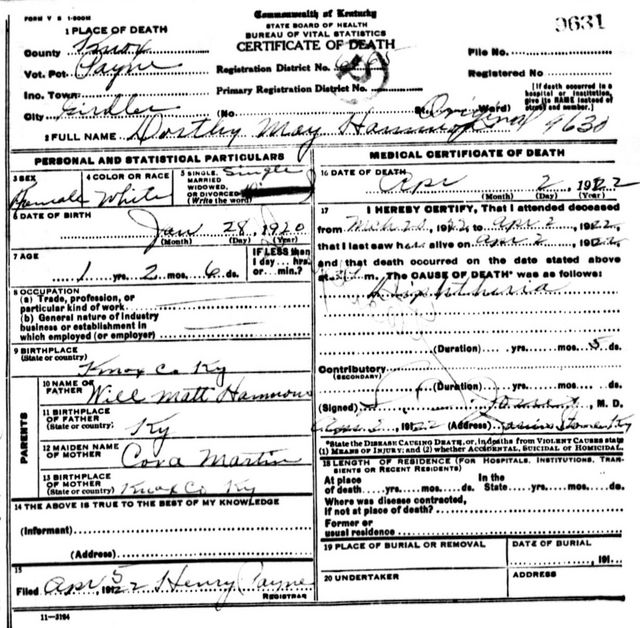 FORM V S 1-500M
Commonwealth of Kentucky
9631
STATE BOARD OF HEALTH
BUREAU OF VITAL STATISTICS
CERTIFICATE OF DEATH
1 PLACE OF DEATH
County Knox
Vot. Pct Payne
Inc. Town
City Girdler
Registration District No.
Primary Registration District No.
(No St. Ward)
File No.
Registered No
[If death occurred in a hospital or institution, give its NAME instead of street and number.
Original 9630
2 FULL NAME Dorthy May Hammons
PERSONAL AND STATISTICAL PARTICULARS
3 SEX Female
4 COLOR OR RACE White
5 SINGLE, MARRIED WIDOWED, OR DIVORCED (Write the word) Single
6 DATE OF BIRTH
Jan 28, 1920
(Month) (Day) (Year)
7 AGE
1 yrs. 2 mos. 6 ds.
IF LESS then 1 day... hrs. or min.?
8 OCCUPATION
(a) Trade, profession, or particular kind of work
(b) General nature of industry business or establishment in which employed (or employer)
9 BIRTHPLACE (State or country) Knox Co Ky
PARENTS
10 NAME OF FATHER Will Matt Hammons
11 BIRTHPLACE OF FATHER (State or country) Ky
12 MAIDEN NAME OF MOTHER Cora Martin
13 BIRTHPLACE OF MOTHER (State or country) Knox Co Ky
14 THE ABOVE IS TRUE TO THE BEST OF MY KNOWLEDGE
(Informant)
(Address)
15
Filed Apr 5, 1922 Henry Payne
REGISTRAR
11-3194
MEDICAL CERTIFICATE OF DEATH
16 DATE OF DEATH
Apr 2 1922
(Month) (Day)
17 I HEREBY CERTIFY, That I attended deceased
from 1922 to Apr 2, 1922,
that I last saw her alive on Apr 2, 1922
and that death occurred on the date stated above
at m. The CAUSE OF DEATH* was as follows:
Diphtheria
(Duration) yrs. mos. 5 ds.
Contributory (SECONDARY)
(Duration) yrs. mos. ds.
(Signed) , M. D.
1922 (Address)
*State the DISEASE CAUSING DEATH, or, in deaths from VIOLENT CAUSES state (1) MEANS OF INJURY; and (2) whether ACCIDENTAL, SUICIDAL or HOMICIDAL.
18 LENGTH OF RESIDENCE (FOR HOSPITALS, INSTITUTIONS, TRANSIENTS OR RECENT RESIDENTS)
At place of death yrs. mos. ds. In the State yrs. mos. ds.
Where was disease contracted, If not at place of death?
Former or usual residence
19 PLACE OF BURIAL OR REMOVAL
DATE OF BURIAL
191
20 UNDERTAKER
ADDRESS